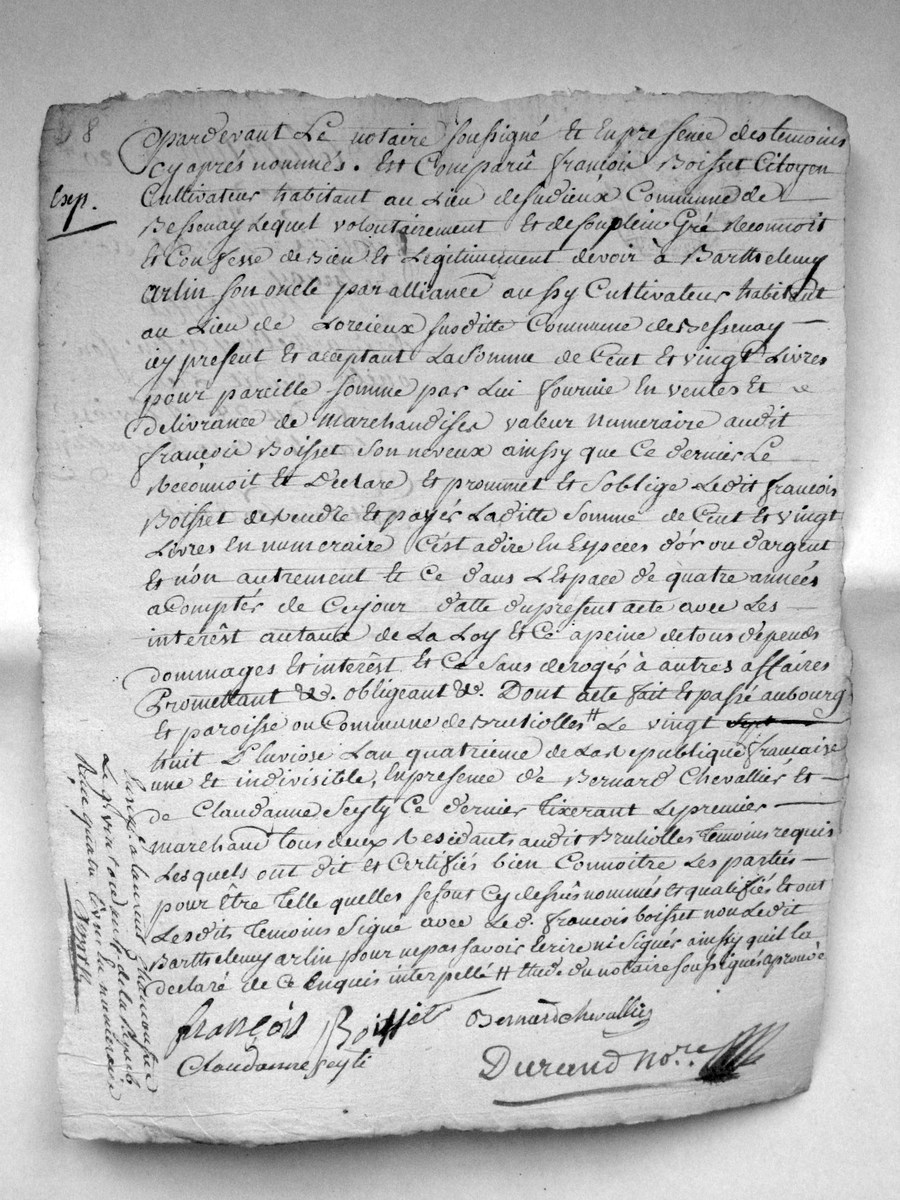 8
Exp.
Pardevant Le notaire soussigné et En presence des temoins
cy après nommés. Est Comparû françois Boisset Citoyen
Cultivateur habitant au Lieu de Sudieux Commune de
Bessenay Lequel volontairement et de son plein Gré Reconnoit
et Confesse de Bien et Legitimement devoir à Barthelemy
arlin son oncle par alliance aussy Cultivateur habitant
au Lieu de Lorcieux susditte Commune de Bessenay
icy present et acceptant La Somme de Cent et vingt Livres
pour pareille somme par Lui fournie En ventes et
delivrance de Marchandises valeur numeraire audit
françois Boisset son neveux ainssy que Ce dernier Le
Réconnoit et Déclare et prommet et soblige Ledit françois
Boisset de Rendre et payér Laditte somme de Cent et vingt
Livres En numeraire C'est a dire En Especes d'or ou d'argent
et n'on autrement et Ce dans L'Espace de quatre années
a Comptér de Ce jour d'atte du present acte avec Les
interêt au taux de La Loy et Ce à peine de tous dépends
dommages et interêt et Ce sans derogér à autres affaires
Promettant &c. obligeant &c. Dont acte fait et passé au bourg
et paroisse ou Commune de Brusiolles # Le vingt sept
huit Pluviose L'an quatrieme de La Republique française
une et indivisible, En presence de Bernard Chevallier et
de Claudanne Seyty Ce dernier tixerant Le premier
marchand tous deux Residants audit Brusiolles temoins requis
Lesquels ont dit et Certifiés bien Connoitre Les parties
pour être telle quelles se sont Cy dessus nommés et qualifiés et ont
Lesdits temoins signé avec Led. françois boisset non Ledit
Barthelemy arlin pour ne pas savoir Ecrire ni signér ainssy quil la
declaré de Ce Enquis interpellé # étude du notaire soussigné aprouvé
françois Boisset
Bernard chevallier
Claudanne seyti
Durand No.re
Le
de la Repub.
Reçu quatre Livres En numeraire